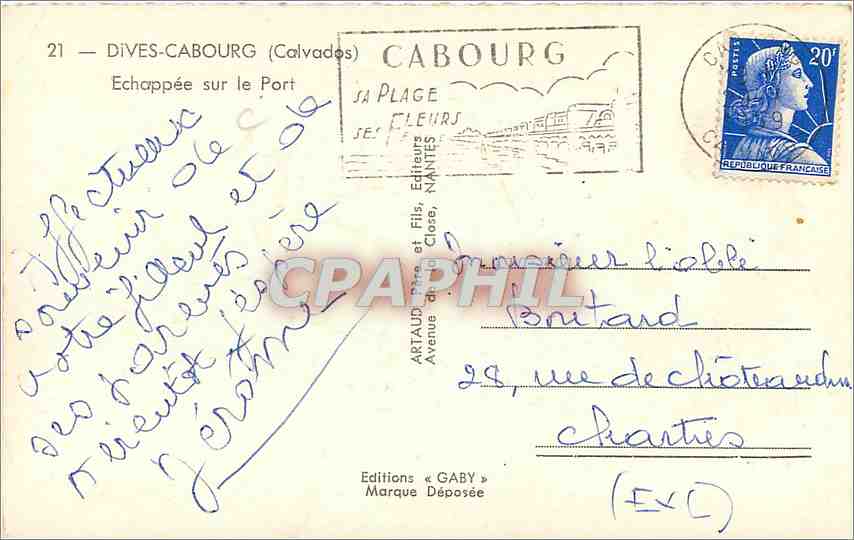 21 — DiVES-CABOURG (Calvados)
Echappée sur le Port
CABOURG
SA PLAGE
SES FLEURS
POSTES
20F
REPUBLIQUE FRANÇAISE
Affectueux
souvenir de
votre filleul et de
ses parents
Bientôt j'espère
Jérôme
ARTAUD Père et Fils, Editeurs
Avenue de la Close, NANTES
CPAPHIL
Monsieur l'abbé
Boutard
28, rue de Châteaudun
Chartres
(E&L)
Editions « GABY »
Marque Déposée